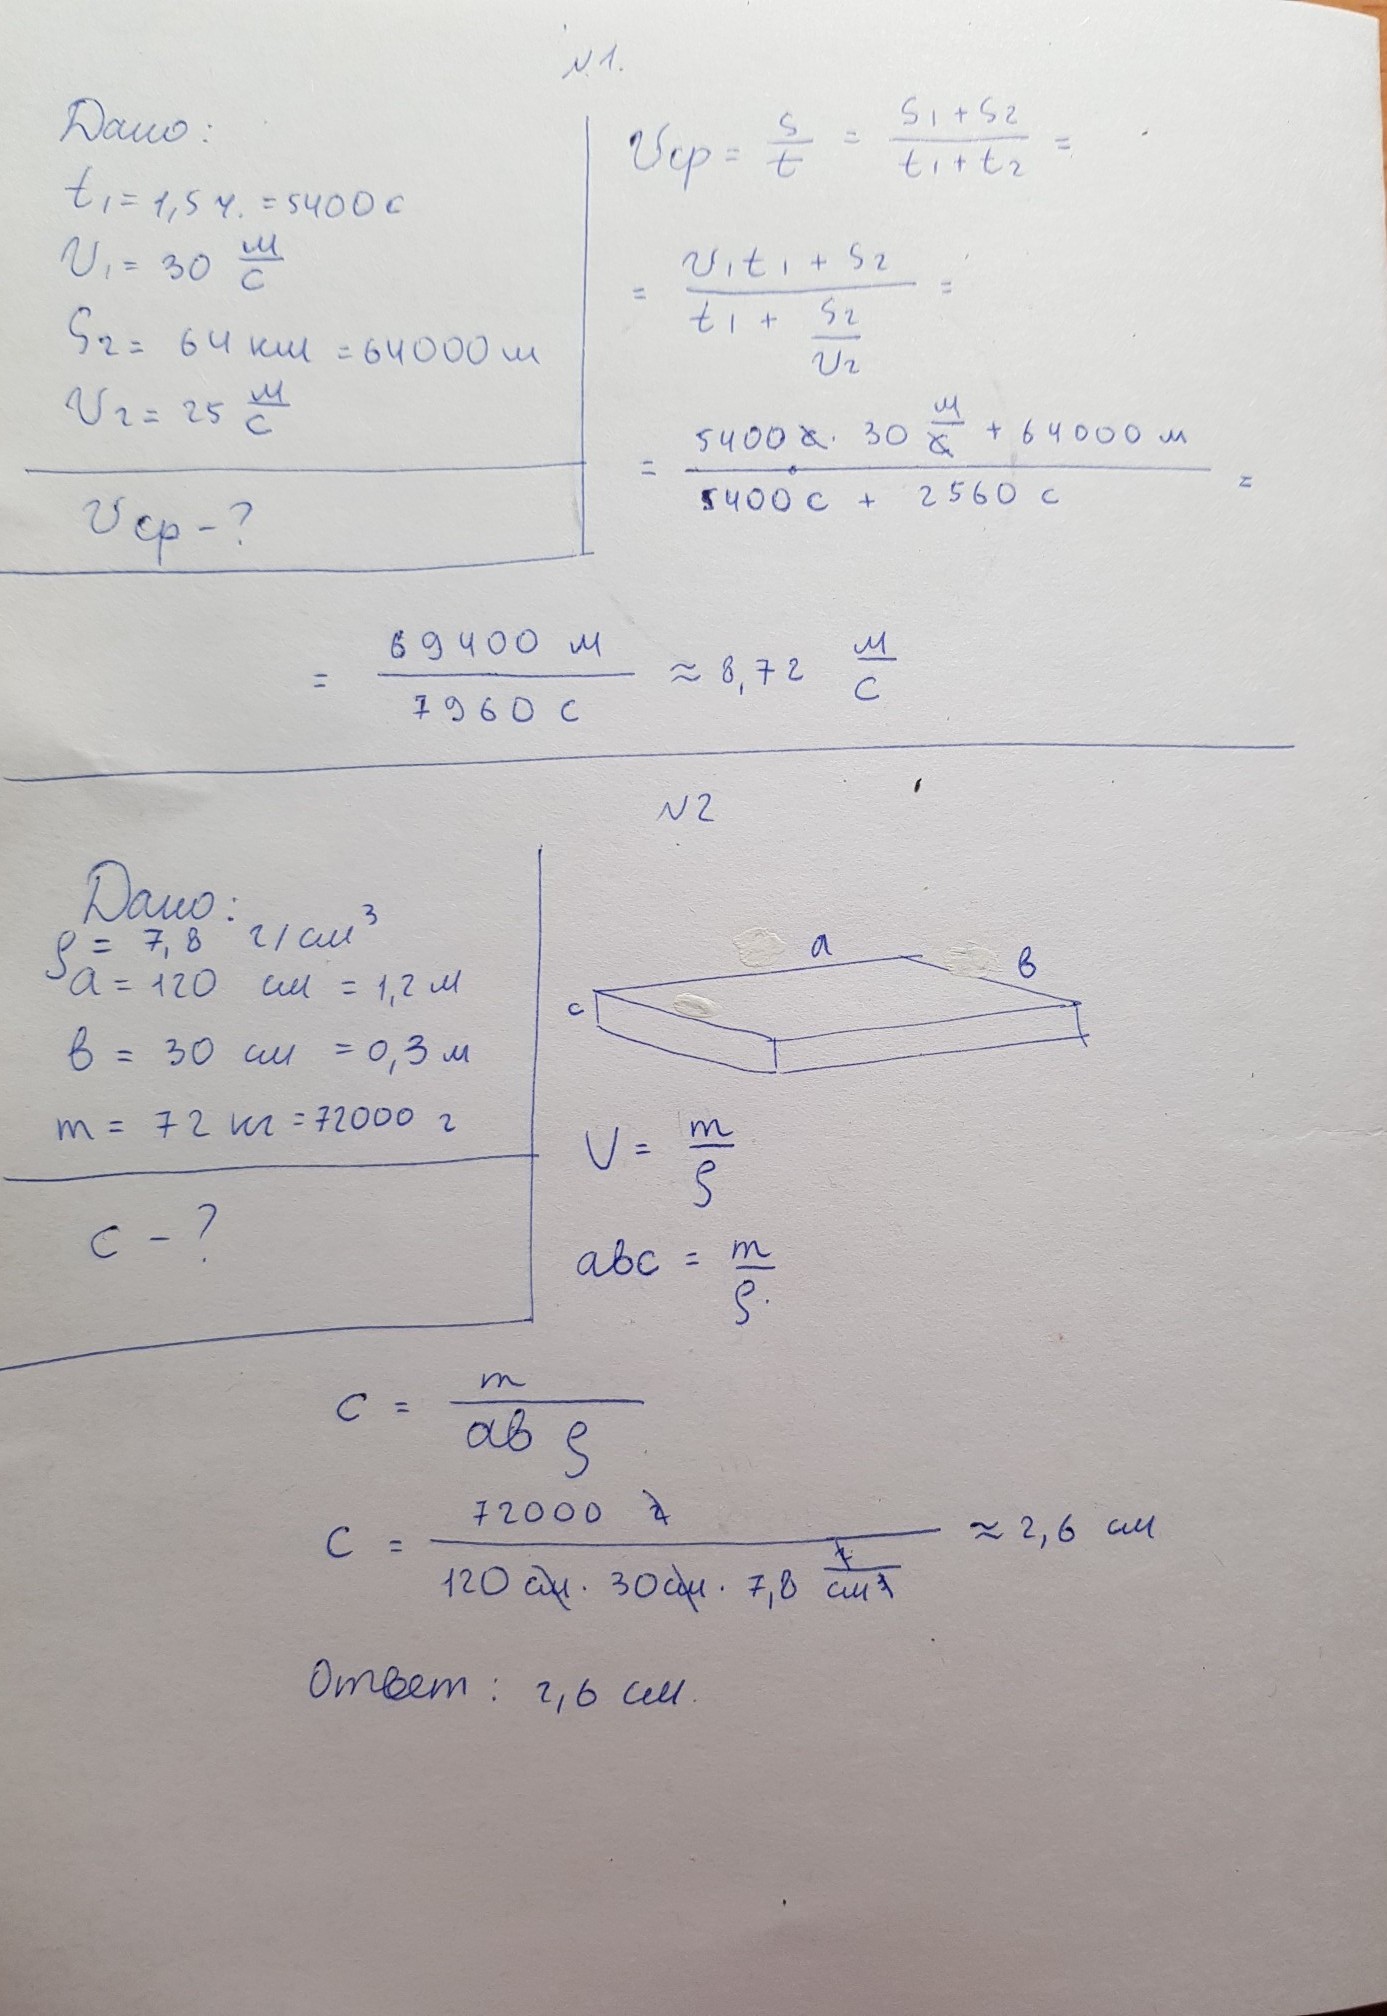 N1.
Дано:
t₁ = 1,5 ч. = 5400 с
V₁ = 30 м/с
S₂ = 64 км = 64000 м
V₂ = 25 м/с
Vср - ?
Vср = S/t = (S₁ + S₂)/(t₁ + t₂) =
= (V₁t₁ + S₂)/(t₁ + S₂/V₂) =
= (5400 с · 30 м/с + 64000 м)/(5400 с + 2560 с) =
= 69400 м/7960 с ≈ 8,72 м/с
N2
Дано:
ρ = 7,8 г/см³
a = 120 см = 1,2 м
в = 30 см = 0,3 м
m = 72 кг = 72000 г
c - ?
a
в
c
V = m/ρ
aвc = m/ρ
c = m/(aв ρ)
c = 72000 г/(120 см · 30 см · 7,8 г/см³) ≈ 2,6 см
Ответ: 2,6 см.